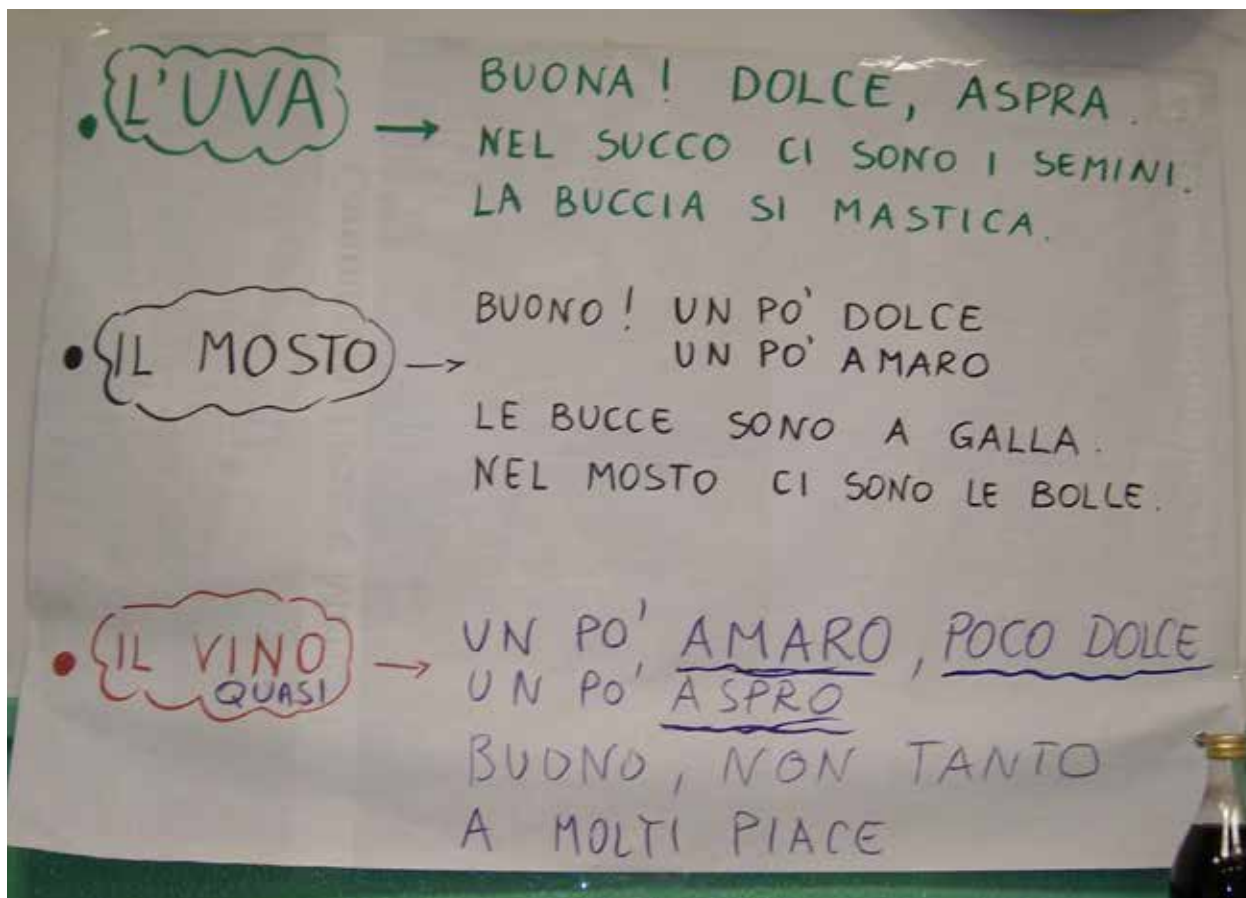 L'UVA → BUONA! DOLCE, ASPRA.
NEL SUCCO CI SONO I SEMINI.
LA BUCCIA SI MASTICA.
IL MOSTO → BUONO! UN PO' DOLCE
UN PO' AMARO
LE BUCCE SONO A GALLA.
NEL MOSTO CI SONO LE BOLLE.
IL VINO → UN PO' AMARO, POCO DOLCE
QUASI UN PO' ASPRO
BUONO, NON TANTO
A MOLTI PIACE